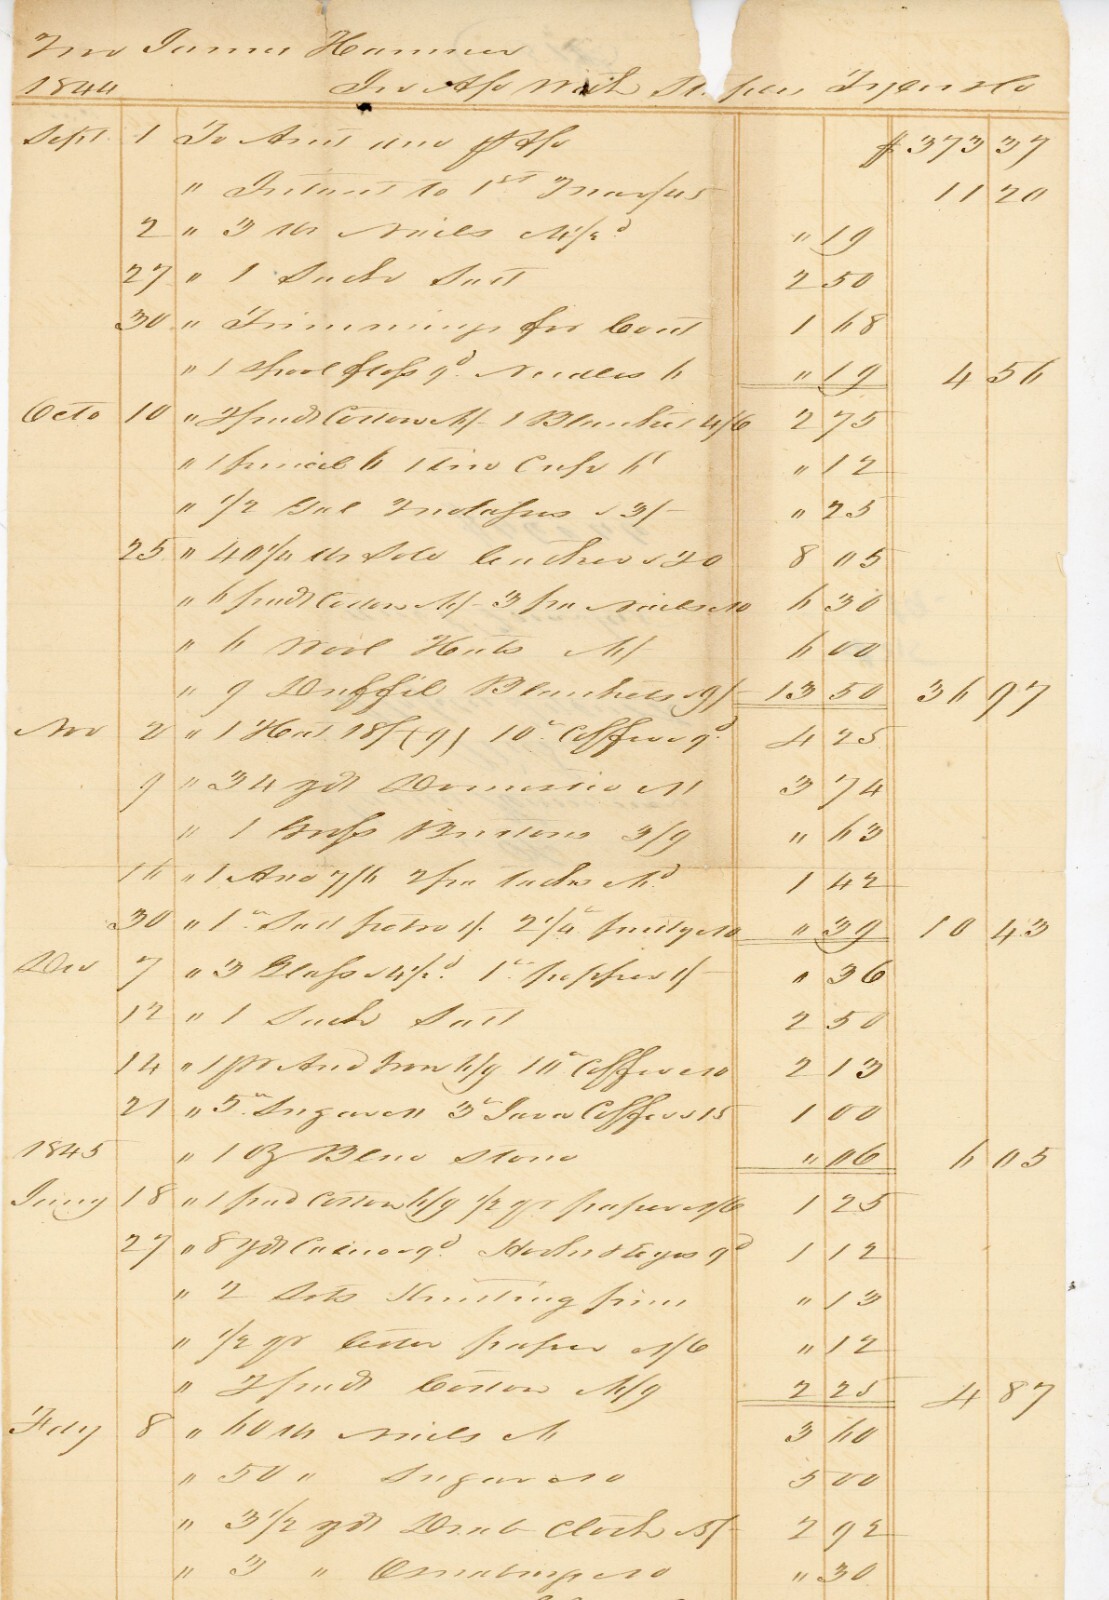 Mr James Hammer
1844 In A/c With Tyer & Co
Sept 1 To Amt due pr A/c $373 37
" Interest to 1st Mar/45 11 20
2 " 3 lbs Nails " 19
27 " 1 Sack Salt 2 50
30 " Trimmings for Coat 1 68
" 1 Spool floss 9d Needles 6 " 19 4 56
Octo 10 " 2 bnds Cotton 6/- 1 Blanket 4/6 2 75
" 1 pencil 6 1 tin Cup 6 " 12
" 1/2 Gal Molasses 3/- " 25
25 " 40 1/4 lbs Sole Leather 20 8 05
" 6 bnds Cotton 6/- 3 Nails 10 6 30
" 6 Wool Hats 6/ 6 00
" 9 Duffil Blankets 9/- 13 50 36 97
Nov 2 " 1 Hat 18/ (9) 10 " Coffee 9d 4 25
9 " 34 yds Domestic 11 3 74
" 1 Gross Buttons 3/9 " 63
16 " 1 7/6 2 Tacks 1 42
30 " 1 " Salt petre 1/. 2 1/4 " 10 " 39 10 43
Dec 7 " 3 Glass 1 " pepper 1/- " 36
12 " 1 Sack Salt 2 50
14 " 1 pr And Iron 6/9 10 " Coffee 10 2 13
21 " 5 " Sugar 11 3 " Java Coffee 15 1 00
1845 " 1 Oz Blue Stone " 06 6 05
Jany 18 " 1 bnd Cotton 6/9 1/2 qr paper 1/6 1 25
27 " 8 yds Calico 9d Hooks & Eyes 9d 1 12
" 2 Sets Knitting pins " 13
" 1/2 qr Letter paper 1/6 " 12
" 2 bnds Cotton 6/9 2 25 4 87
Feby 8 " 60 lbs Nails 6 3 60
" 50 " Sugar 10 5 00
" 3 1/2 yds Drab Cloth 5/- 2 92
" 3 " Osnaburgs 10 " 30